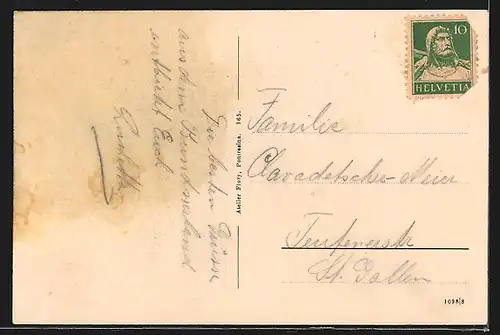 Die besten Grüsse
aus dem Bündnerland
entbietet Euch
Atelier Flury, Pontresina. 165.
10
HELVETIA
Familie
Clavadetscher-Meier
Teufenerstr
St. Gallen
1098|8